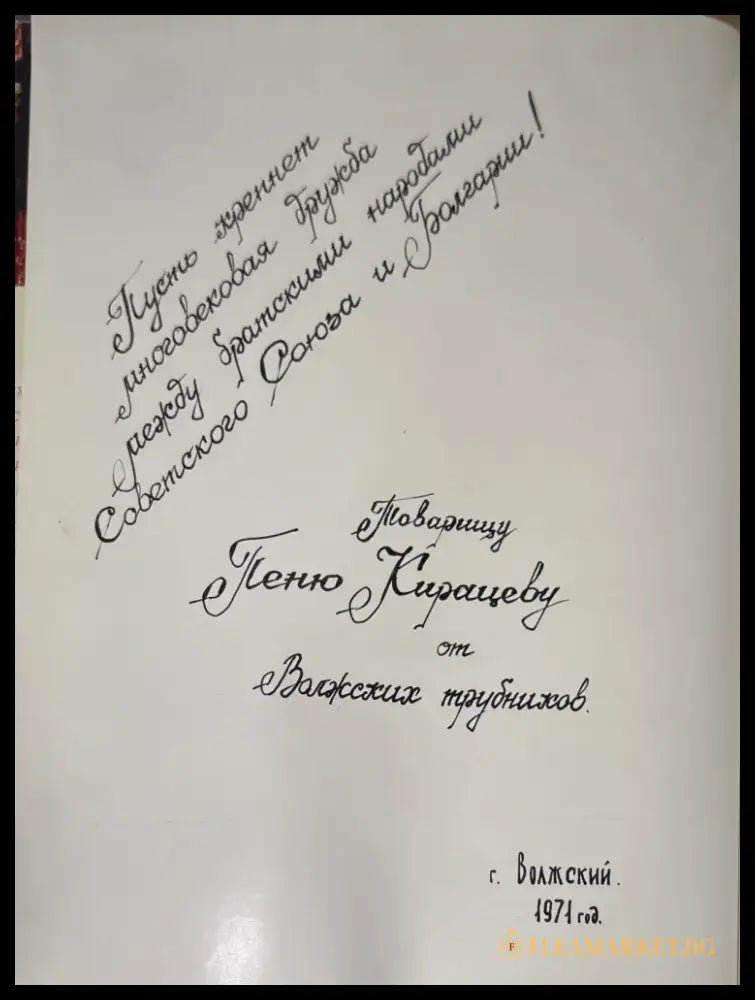 Пусть крепнет
многовековая дружба
между братскими народами
Советского Союза и Болгарии!
Товарищу
Пеню Кирацеву
от
Волжских трубников.
г. Волжский.
1971 год.
FLEAMARKET.BG